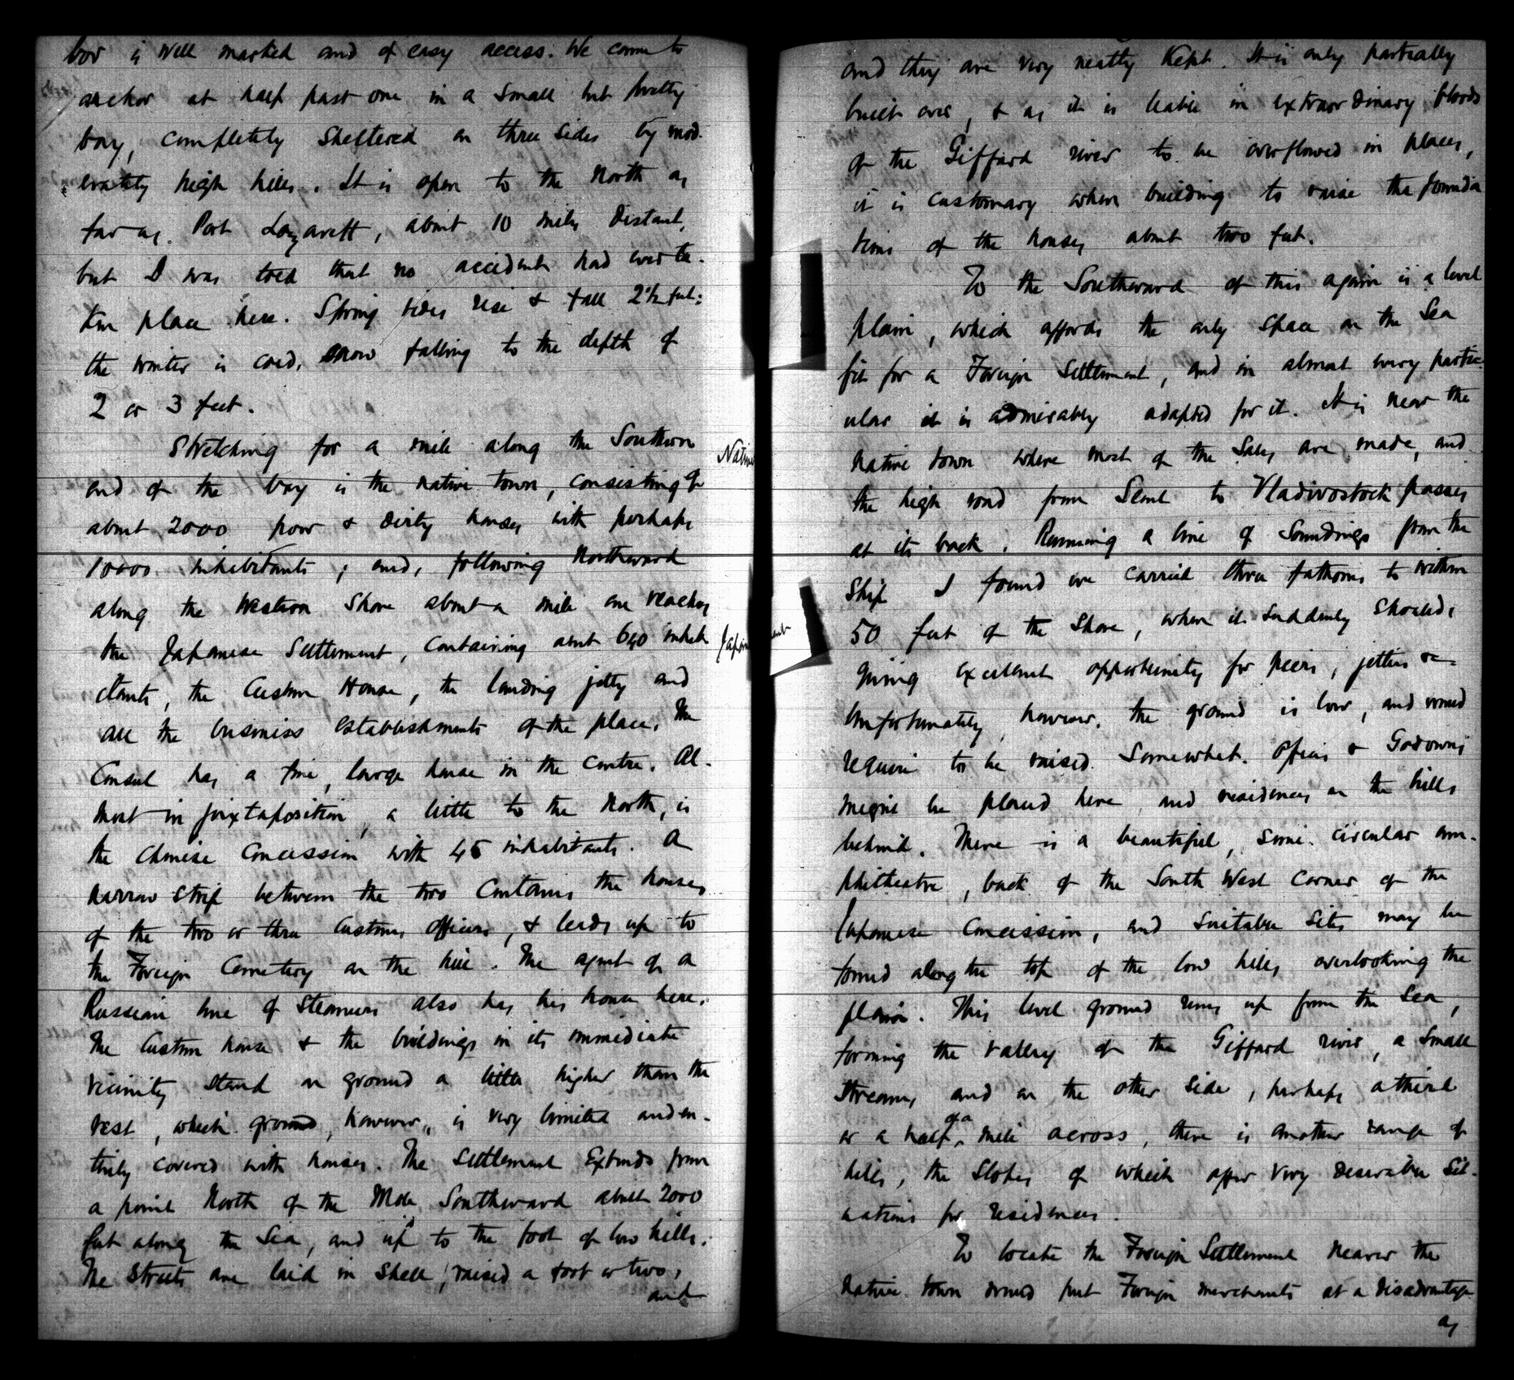 bor is well marked and of easy access. We came to
anchor at half past one in a small but pretty
bay, completely sheltered on three sides by mod-
erately high hills. It is open to the North as
far as Port Lazareff, about 10 miles distant,
but I was told that no accident had ever ta-
ken place here. Spring tides rise & fall 2½ feet:
the winter is cold, snow falling to the depth of
2 or 3 feet.
Stretching for a mile along the Southern
end of the bay is the native town, consisting of
about 2000 poor & dirty houses with perhaps
10000 inhabitants; and, following Northward
along the Western shore about a mile one reaches
the Japanese Settlement, containing about 690 inhab-
itants, the Custom House, the landing jetty and
all the business establishments of the place. The
Consul has a fine, large house in the centre. Al-
most in juxtaposition, a little to the North, is
the Chinese Concession with 45 inhabitants. A
narrow strip between the two contains the houses
of the two or three Customs Officers, & leads up to
the Foreign Cemetery on the hill. The agent of a
Russian line of Steamers also has his house here.
The Custom house & the buildings in its immediate
vicinity stand on ground a little higher than the
rest, which ground, however, is very limited and en-
tirely covered with houses. The Settlement extends from
a point North of the Mole, Southward about 2000
feet along the Sea, and up to the foot of low hills.
The streets are laid in shell, raised a foot or two,
and
Native
Japan
and they are very neatly kept. It is only partially
built over, & as it is liable in extraordinary floods
of the Giffard river to be overflowed in places,
it is customary when building to raise the founda
tions of the houses about two feet.
To the Southward of this again is a level
plain, which affords the only space on the Sea
fit for a Foreign Settlement, and in almost every partic-
ular it is admirably adapted for it. It is near the
native town where most of the sales are made, and
the high road from Seoul to Vladivostock passes
at its back. Running a line of soundings from the
ship I found we carried three fathoms to within
50 feet of the shore, where it suddenly shoaled,
giving excellent opportunity for piers, jetties &c
Unfortunately, however, the ground is low, and would
require to be raised somewhat. Offices & Godowns
might be placed here and residences on the hills
behind. There is a beautiful, semi-circular am-
phitheatre, back of the South West corner of the
Japanese Concession, and suitable sites may be
found along the top of the low hills overlooking the
plain. This level ground runs up from the Sea,
forming the valley of the Giffard river, a small
stream, and on the other side, perhaps a third
or a half of a mile across, there is another range of
hills, the slopes of which offer very desirable sit-
uations for residences.
To locate the Foreign Settlement nearer the
native town would put Foreign merchants at a disadvantage
as